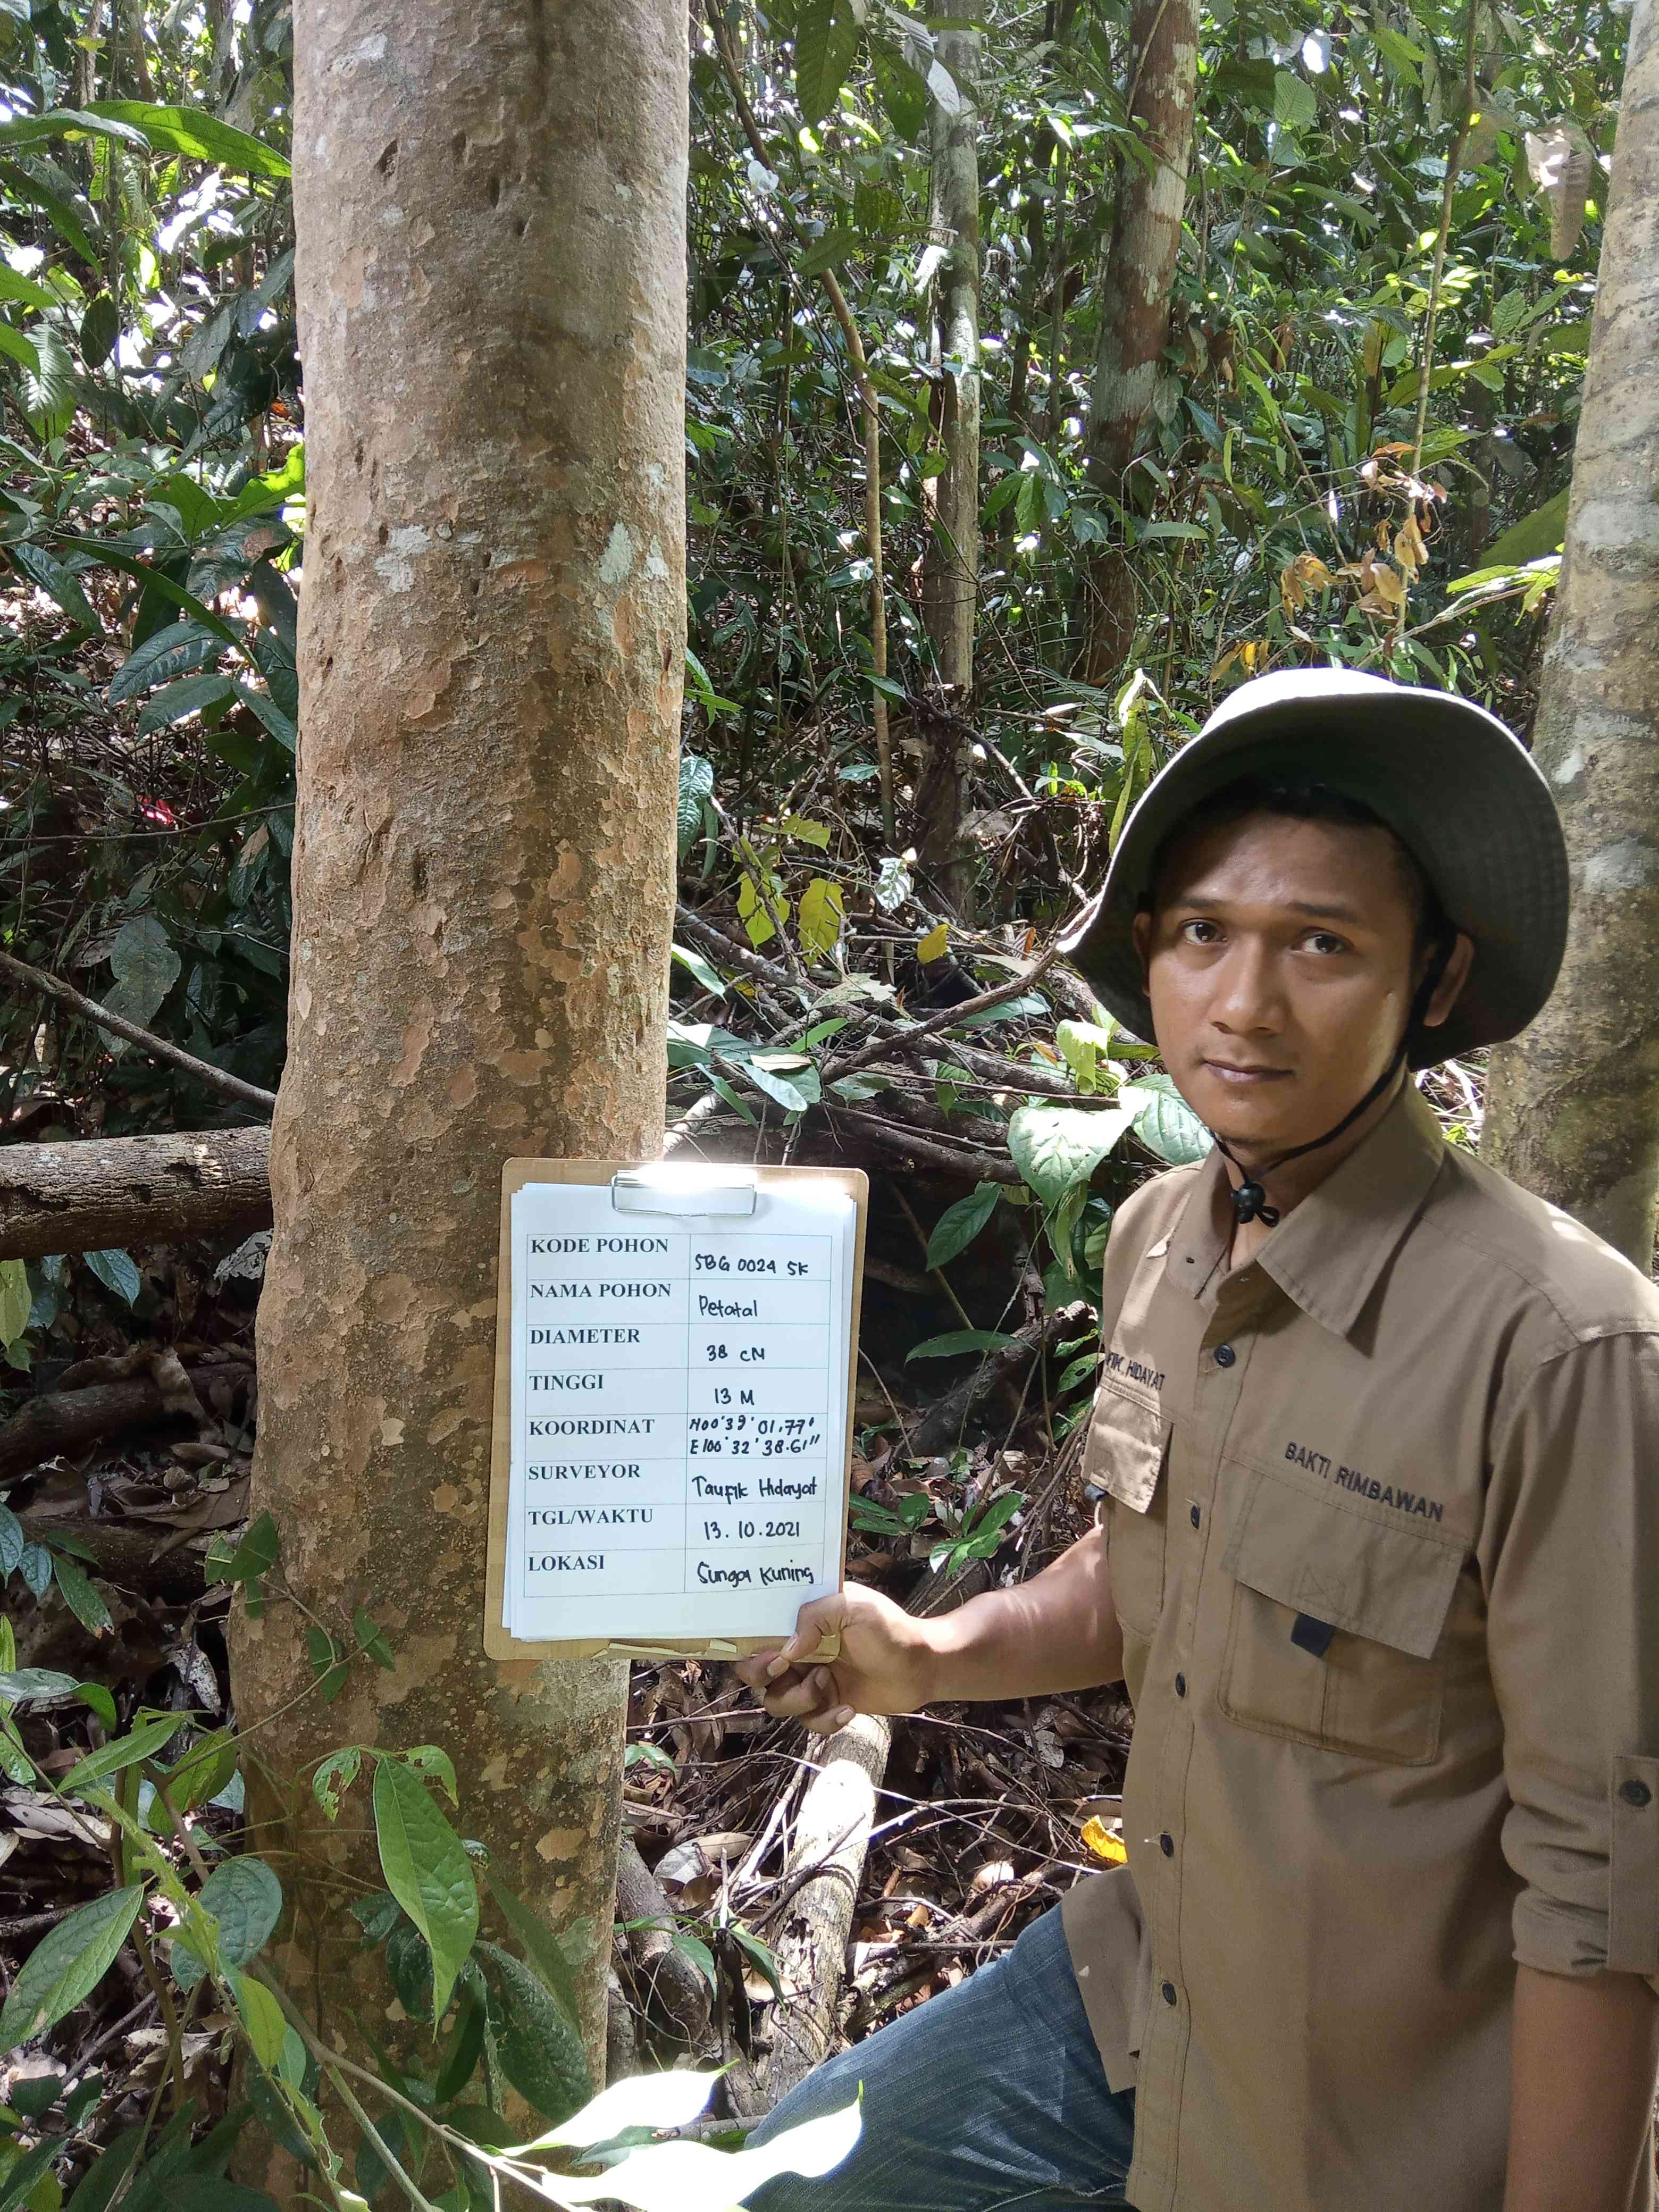 KODE POHON SBG 0024 SK
NAMA POHON Petatal
DIAMETER 38 CM
TINGGI 13 M
KOORDINAT N00°39'01.77"
E100°32'38.61"
SURVEYOR Taufik Hidayat
TGL/WAKTU 13.10.2021
LOKASI Sungai Kuning
FIK HIDAYAT
BAKTI RIMBAWAN